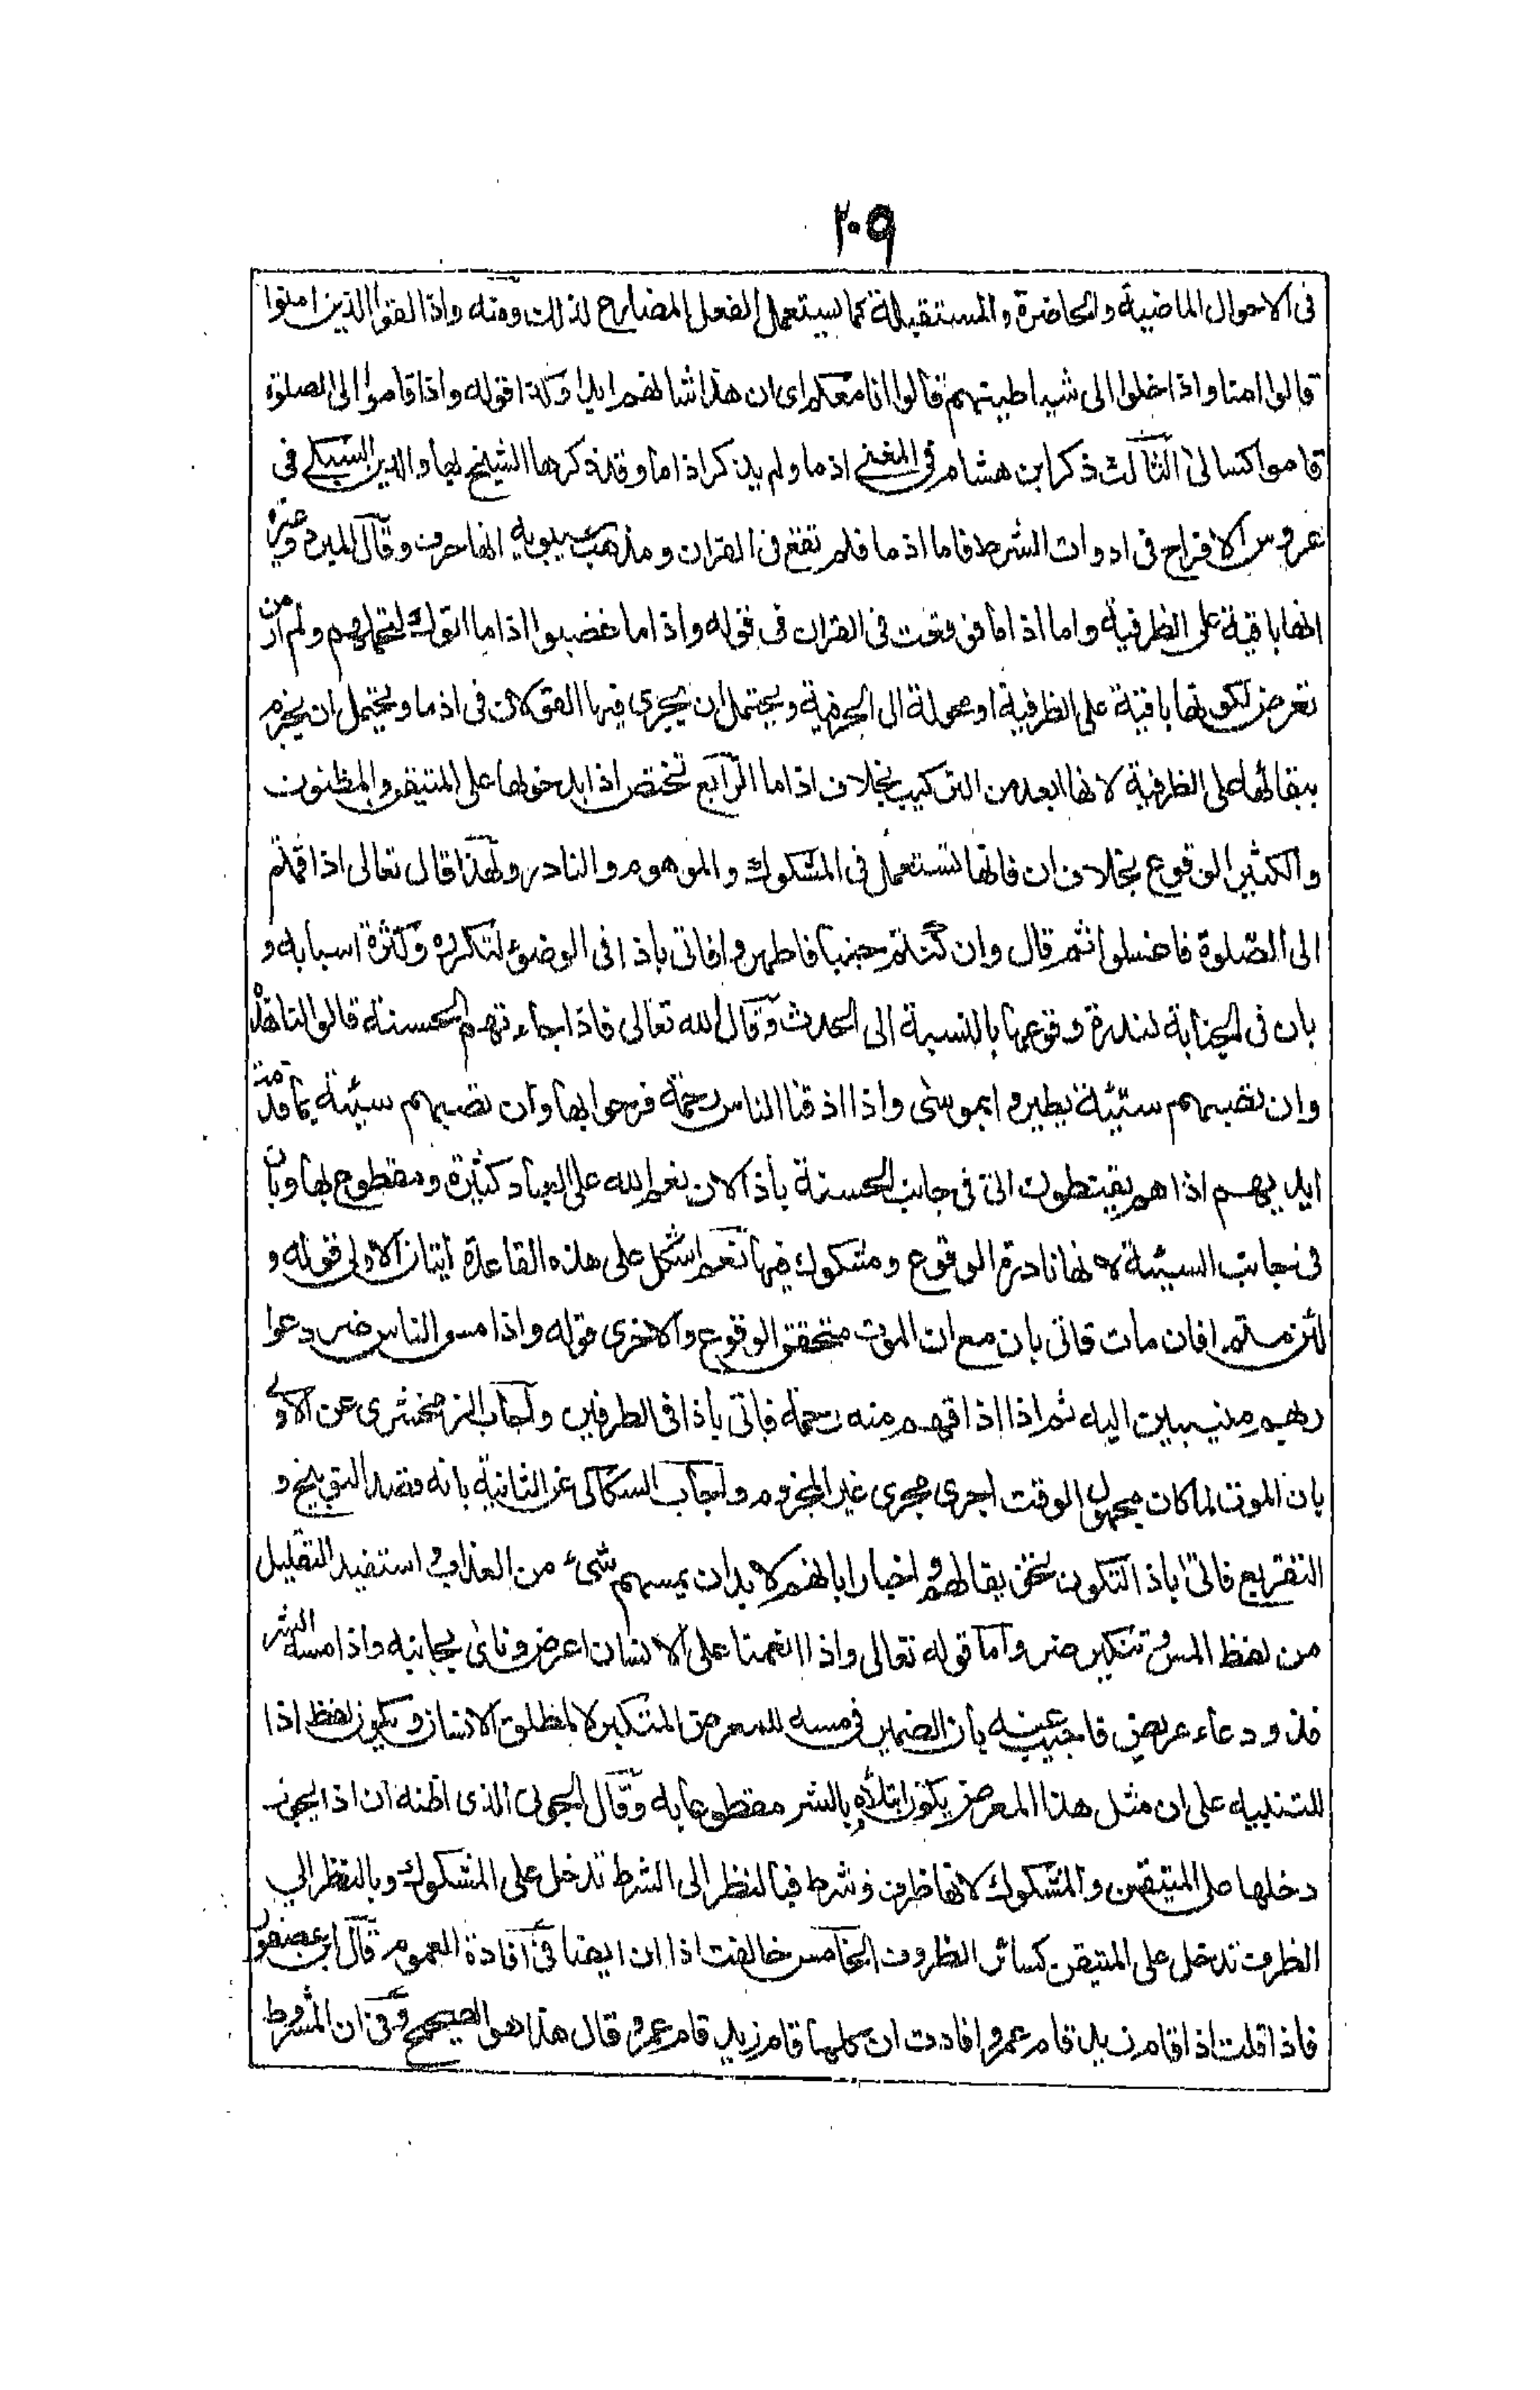 ٢٠٩
فى الاحوال الماضية والحاضرة والمستقبلة كما يستعمل الفعل المضارع لذلك ومنه واذا لقوا الذين امنوا
قالوا امنا واذا خلوا الى شياطينهم قالوا انا معكم اى ان هذا شانهم ابدا وكذا قوله واذا قاموا الى الصلوة
قاموا كسالى الثالث ذكر ابن هشام فى المغنى اذ ما ولم يذكر اذا ما وقد ذكرها الشيخ بهاء الدين السبكى فى
عروس الافراح فى ادوات الشرط فاما اذ ما فلم تقع فى القران ومذهب سيبويه انها حرف وقال المبرد وغيره
انها باقية على الظرفية واما اذا ما فوقعت فى القران فى قوله واذا ما غضبوا اذا ما اتوك لتحملهم ولم ار من
تعرض لكونها باقية على الظرفية او محولة الى الحرفية ويحتمل ان يجرى فيها القولان فى اذ ما ويحتمل ان يجزم
ببقائها على الظرفية لانها ابعد من التركيب بخلاف اذ ما الرابع تختص اذا بدخولها على المتيقن والمظنون
والكثير الوقوع بخلاف ان فانها تستعمل فى المشكوك والموهوم والنادر ولهذا قال تعالى اذا قمتم
الى الصلوة فاغسلوا ثم قال وان كنتم جنبا فاطهروا فاتى باذا فى الوضوء لتكرره وكثرة اسبابه و
بان فى الجنابة لندرة وقوعها بالنسبة الى الحدث وقال الله تعالى فاذا جاءتهم الحسنة قالوا لنا هذه
وان تصبهم سيئة يطيروا بموسى واذا اذقنا الناس رحمة فرحوا بها وان تصبهم سيئة بما قدمت
ايديهم اذا هم يقنطون اتى فى جانب الحسنة باذا لان نعم الله على العباد كثيرة ومقطوع بها وبان
فى جانب السيئة لانها نادرة الوقوع ومشكوك فيها نعم اشكل على هذه القاعدة ايتان الاولى قوله و
لئن متم افان مات فاتى بان مع ان الموت متحقق الوقوع والاخرى قوله واذا مس الناس ضر دعوا
ربهم منيبين اليه ثم اذا اذاقهم منه رحمة فاتى باذا فى الطرفين واجاب الزمخشرى عن الاولى
بان الموت لما كان مجهول الوقت اجرى مجرى غير المجزوم واجاب السكاكى عن الثانية بانه قصد التوبيخ و
التقريع فاتى باذا لتكون تخويفا لهم واخبارا بانهم لا بد ان يمسهم شىء من العذاب واستفيد التقليل
من لفظ المس وتنكير ضر واما قوله تعالى واذا انعمنا على الانسان اعرض وناى بجانبه واذا مسه الشر
فذو دعاء عريض فاجيب عنه بان الضمير فى مسه للمعرض المتكبر لا لمطلق الانسان ويكون لفظ اذا
للتنبيه على ان مثل هذا المعرض يكون ابتلاؤه بالشر مقطوعا به وقال الجوبى الذى اظنه ان اذا يجوز
دخلها على المتيقن والمشكوك لانها ظرف وشرط فبالنظر الى الشرط تدخل على المشكوك وبالنظر الى
الظرف تدخل على المتيقن كسائر الظروف الخامس خالفت اذا ان ايضا فى افادة العموم قال ابن عصفور
فاذا قلت اذا قام زيد قام عمرو افادت ان كلما قام زيد قام عمرو قال هذا هو الصحيح وفى ان المشروط